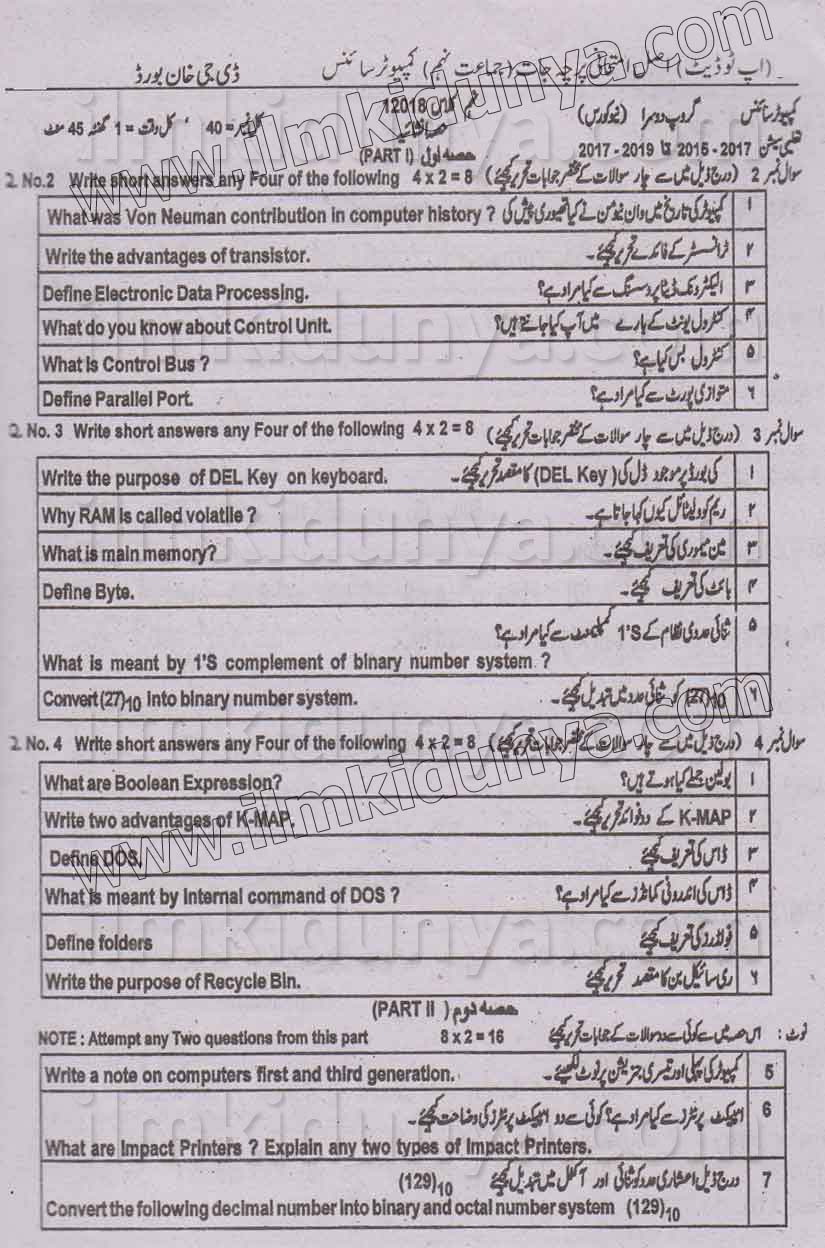 (اپ ٹو ڈیٹ) اصل امتحانی پرچہ جات (جماعت نہم) کمپیوٹر سائنس ڈی جی خان بورڈ
کمپیوٹر سائنس گروپ دوسرا (نیو کورس) 12018 نہم کلاس
تعلیمی سیشن 2015 - 2017 تا 2017 - 2019 کل نمبر = 40 کل وقت = 1 گھنٹہ 45 منٹ
حصہ اول (PART I)
2. No.2 Write short answers any Four of the following 4 x 2 = 8 سوال نمبر 2 (درج ذیل میں سے چار سوالات کے مختصر جوابات تحریر کیجئے)
What was Von Neuman contribution in computer history ? کمپیوٹر کی تاریخ میں وان نیومن نے کیا تھیوری پیش کی ۱
Write the advantages of transistor. ٹرانسسٹر کے فائدے تحریر کیجئے۔ ۲
Define Electronic Data Processing. الیکٹرونک ڈیٹا پروسسنگ سے کیا مراد ہے؟ ۳
What do you know about Control Unit. کنٹرول یونٹ کے بارے میں آپ کیا جانتے ہیں؟ ۴
What Is Control Bus ? کنٹرول بس کیا ہے؟ ۵
Define Parallel Port. متوازی پورٹ سے کیا مراد ہے؟ ۶
2. No. 3 Write short answers any Four of the following 4 x 2 = 8 سوال نمبر 3 (درج ذیل میں سے چار سوالات کے مختصر جوابات تحریر کیجئے)
Write the purpose of DEL Key on keyboard. کی بورڈ پر موجود ڈل کی (DEL Key) کا مقصد تحریر کیجئے۔ ۱
Why RAM Is called volatile ? ریم کو ولیٹائل کیوں کہا جاتا ہے۔ ۲
What is main memory? مین میموری کی تعریف کیجئے۔ ۳
Define Byte. بائٹ کی تعریف کیجئے۔ ۴
ثنائی عددی نظام کے 1'S کمپلیمنٹ سے کیا مراد ہے؟ ۵
What is meant by 1'S complement of binary number system ?
Convert (27)10 Into binary number system. (27)10 کو ثنائی عدد میں تبدیل کیجئے۔ ۶
2. No. 4 Write short answers any Four of the following 4 x 2 = 8 سوال نمبر 4 (درج ذیل میں سے چار سوالات کے مختصر جوابات تحریر کیجئے)
What are Boolean Expression? بولین جملے کیا ہوتے ہیں؟ ۱
Write two advantages of K-MAP. K-MAP کے دو فوائد تحریر کیجئے۔ ۲
Define DOS. ڈاس کی تعریف کیجئے ۳
What is meant by Internal command of DOS ? ڈاس کی اندرونی کمانڈز سے کیا مراد ہے؟ ۴
Define folders فولڈرز کی تعریف کیجئے ۵
Write the purpose of Recycle Bin. ری سائیکل بن کا مقصد تحریر کیجئے ۶
حصہ دوم (PART II)
NOTE : Attempt any Two questions from this part 8 x 2 = 16 نوٹ: اس حصہ میں سے کوئی سے دو سوالات کے جوابات تحریر کیجئے
Write a note on computers first and third generation. کمپیوٹر کی پہلی اور تیسری جنریشن پر نوٹ لکھیے۔ 5
امپیکٹ پرنٹرز سے کیا مراد ہے؟ کوئی سے دو امپیکٹ پرنٹرز کی وضاحت کیجئے۔ 6
What are Impact Printers ? Explain any two types of Impact Printers.
درج ذیل اعشاری عدد کو ثنائی اور آکٹل میں تبدیل کیجئے (129)10 7
Convert the following decimal number Into binary and octal number system (129)10
www.ilmkidunya.com
www.ilmkidunya.com
ilmkidunya.com
ilmkidunya.com
ilmkidunya.com
ilmkidunya.com
ilmkidunya.com
ilmkidunya.com